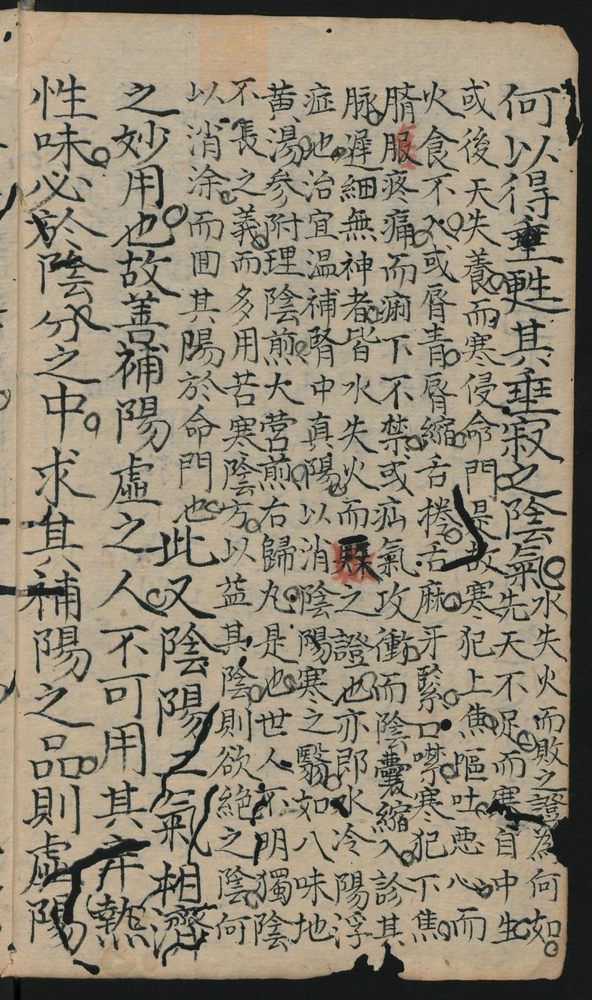 何以得重甦其垂寂之陰氣水失火而敗之證為何如
先天不足而寒自中生
或後天失養而寒侵命門是故寒犯上焦嘔吐惡心而
火食不入或唇青唇縮舌捲舌麻牙緊口噤寒犯下焦
臍服疼痛而痢下不禁或疝氣攻衝而陰囊縮入診其
脉遲細無神者皆水失火而之證也亦即水冷陽浮
症也治宜温補腎中真陽以消陰陽寒之翳如八味地
黃湯參附理陰煎大营煎右歸丸是也世人不明獨陰
不長之義而多用苦寒陰方以益其陰則欲絶之陰何
以消涂而囬其陽於命門也此又陰陽二氣相濟
之妙用也故善補陽虛之人不可用其辛熱
性味必於陰分之中求其補陽之品則虛陽